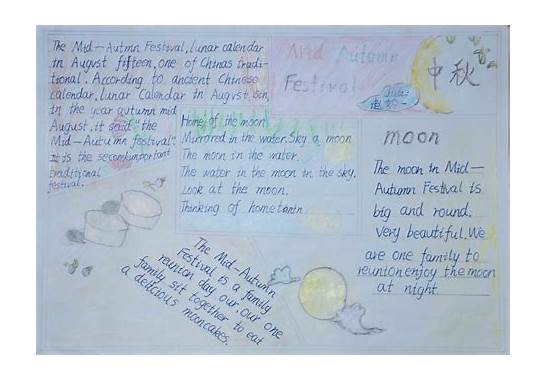 The Mid-Autmn Festival, lunar calendar
in August fifteen, one of Chinas tradi-
tional. According to ancient Chinese
calendar. lunar Calendar in August, 15th,
in the year autumn mid
August. it said "the
Mid-Autumn festival".
It is the second important
traditional
festival.
Mid Autumn
Festival
中秋
Home of the moon
Mirrored in the water. Sky a moon
The moon in the water.
The water in the moon in the sky.
Look at the moon.
Thinking of hometown
moon
The moon in Mid-
Autumn Festival is
big and round.
Very beautiful. We
are one family to
reunion enjoy the moon
at night
The Mid-Autumn
Festival is a family
reunion day our. our one
family sit together to eat
a delicious mooncakes.